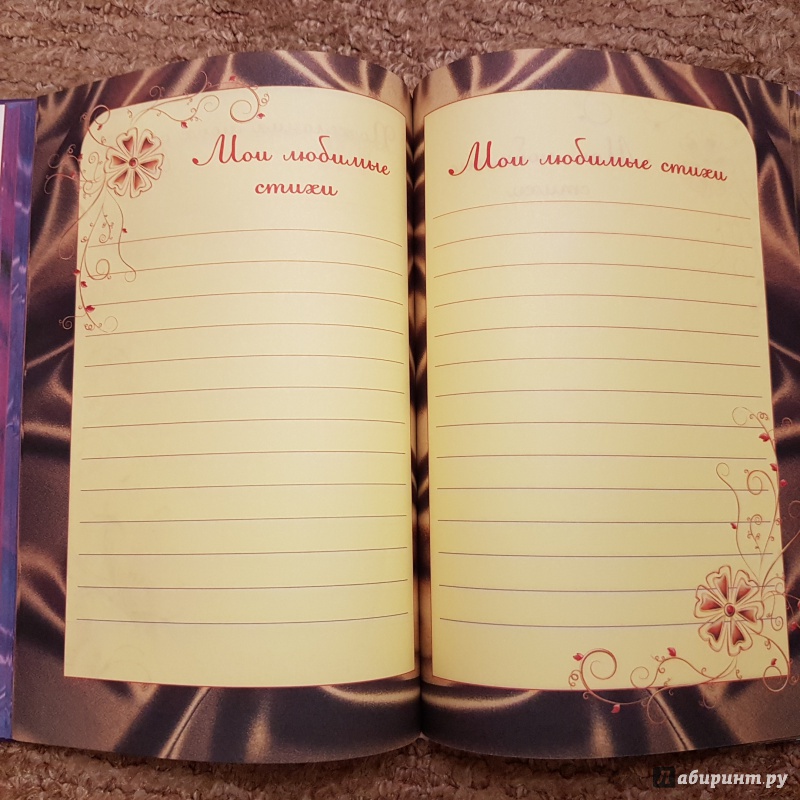 Мои любимые
стихи
Мои любимые стихи
Лабиринт.ру